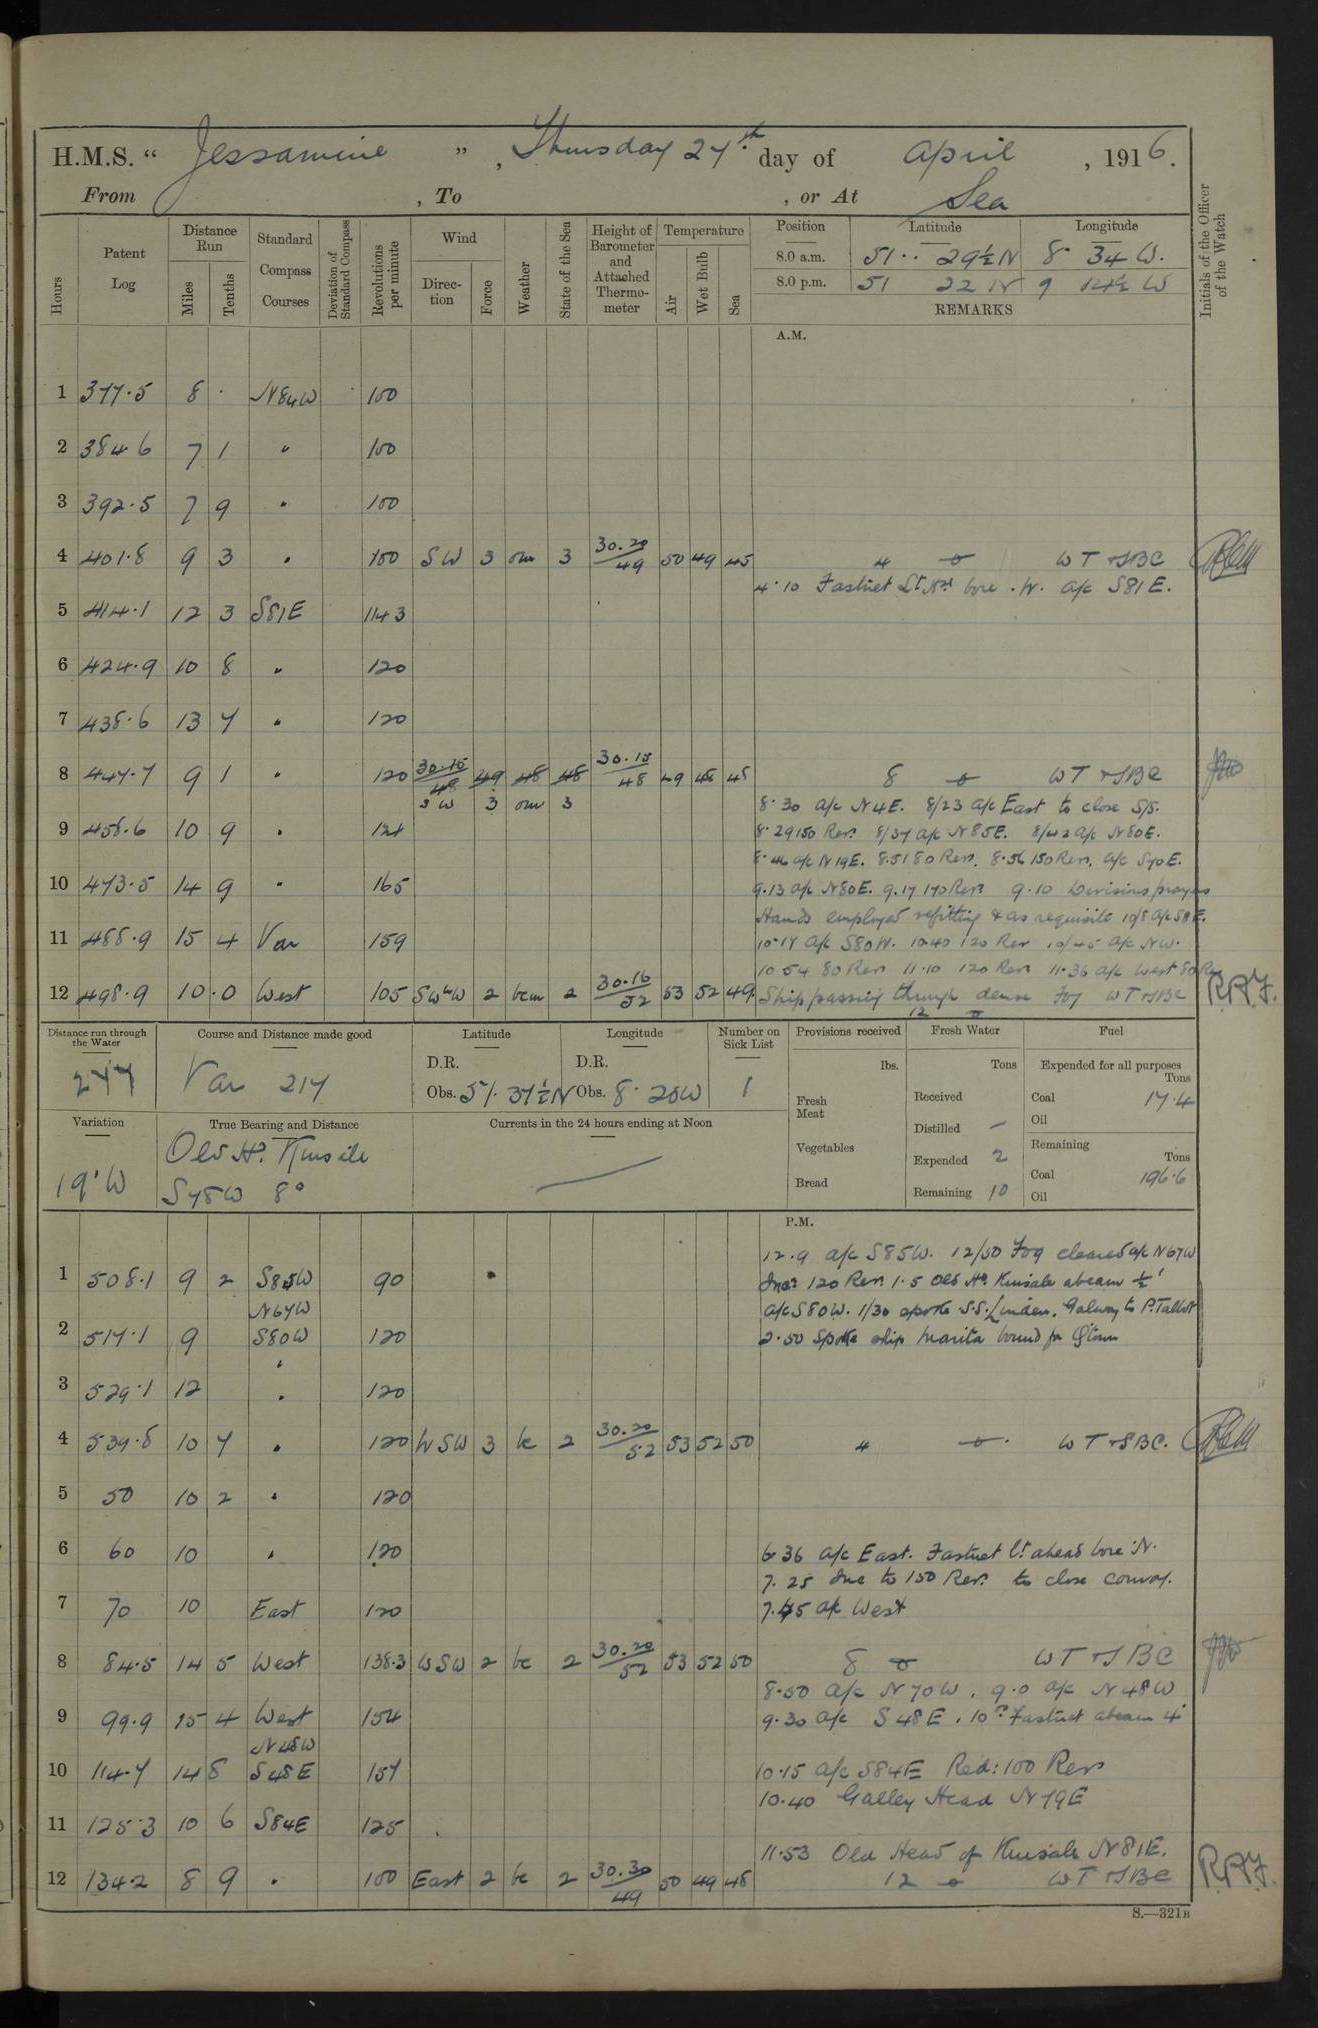 H.M.S. " Jessamine ", Thursday 27th day of April, 1916.
From , To , or At Sea
Hours
Patent Log
Distance Run
Miles
Tenths
Standard Compass Courses
Deviation of Standard Compass
Revolutions per minute
Wind
Direction
Force
Weather
State of the Sea
Height of Barometer and Attached Thermometer
Temperature
Air
Wet Bulb
Sea
Position Latitude Longitude
8.0 a.m. 51 29½ N 8 34 W.
8.0 p.m. 51 22 N 9 14½ W
REMARKS
Initials of the Officer of the Watch
A.M.
1 377.5 8 . N84W 100
2 384 6 7 1 " 100
3 392.5 7 9 " 100
4 401.8 9 3 " 100 SW 3 om 3 30.20/49 50 49 45 4 WT & SBC
4.10 Fastnet Lt Nd bore N. a/c S81E.
5 414.1 12 3 S81E 143
6 424.9 10 8 " 120
7 438.6 13 7 " 120
8 447.7 9 1 " 120 30.15/48 49 48 48 30.15/48 49 48 48 8 WT & SBC
SW 3 om 3
8.30 a/c N4E. 8/23 a/c East to close S/S.
9 458.6 10 9 " 124 8.29 150 Revs. 8/37 a/c N85E. 8/42 a/c N80E.
8.46 a/c N19E. 8.51 80 Revs. 8.56 150 Revs. a/c S70E.
10 473.5 14 9 " 165 9.13 a/c N80E. 9.17 170 Revs 9.10 Divisions prayers
Hands employed refitting & as requisite 10/8 a/c S8E.
11 488.9 15 4 Var 159 10.17 a/c S80W. 10.40 120 Rev 10/45 a/c NW.
10 54 80 Rev 11.10 120 Rev 11.36 a/c West 80 Rev
12 498.9 10.0 West 105 SWbW 2 bcm 2 30.16/52 53 52 49 Ship passing through dense fog WT & SBC R.A.F.
12
Distance run through the Water
277
Course and Distance made good
Var 217
Latitude
D.R.
Obs. 51. 37½ N
Longitude
D.R.
Obs. 8. 20W
Number on Sick List
1
Variation
19° W
True Bearing and Distance
Old Hd. Kinsale
S78W 8°
Currents in the 24 hours ending at Noon
Provisions received
lbs.
Fresh Meat
Vegetables
Bread
Fresh Water
Tons
Received
Distilled —
Expended 2
Remaining 10
Fuel
Expended for all purposes
Tons
Coal 17.4
Oil
Remaining
Tons
Coal 196.6
Oil
P.M.
12.9 a/c S85W. 12/50 Fog cleared a/c N67W
1 508.1 9 2 S85W 90 Incd 120 Rev. 1.5 Old Hd. Kinsale abeam ½'
N67W a/c S80W. 1/30 spoke S.S. Linden, Galway to P. Talbot
2 517.1 9 S80W 120 2.50 Spoke ship Marita bound for Qtown
3 529.1 12 " 120
4 539.8 10 7 " 120 WSW 3 bc 2 30.20/52 53 52 50 4 WT & SBC.
5 50 10 2 " 120
6 60 10 " 120 6.36 a/c East. Fastnet Lt ahead bore N.
7.25 Inc to 150 Revs. to close convoy.
7 70 10 East 120 7.45 a/c West
8 84.5 14 5 West 138.3 WSW 2 bc 2 30.20/52 53 52 50 8 WT & SBC
8.50 a/c N70W. 9.0 a/c N48W
9 99.9 15 4 West 154 9.30 a/c S48E. 10.0 Fastnet abeam 4'
N48W
10 114.7 14 8 S48E 157 10.15 a/c S84E Red: 100 Revs
10.40 Galley Head N79E
11 125.3 10 6 S84E 125
11.53 Old Head of Kinsale N81E.
12 134.2 8 9 " 100 East 2 bc 2 30.30/49 50 49 48 12 WT & SBC R.A.F.
S.—321B